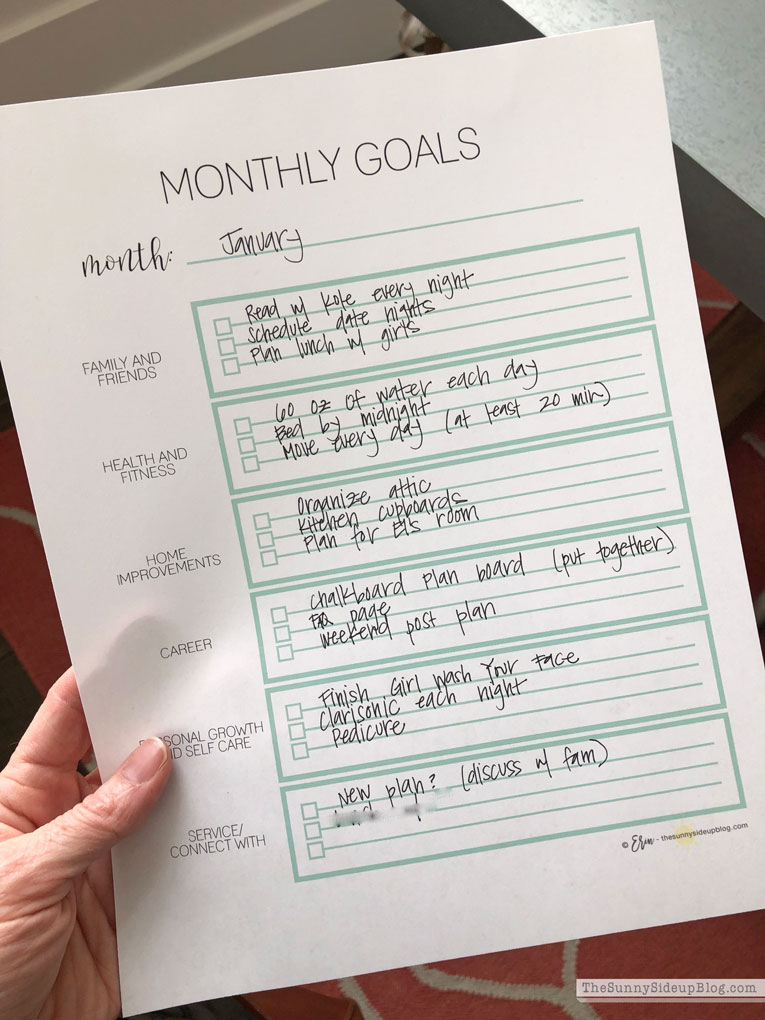 MONTHLY GOALS
month: January
FAMILY AND
FRIENDS
Read w/ Kole every night
Schedule date nights
Plan lunch w/ girls
HEALTH AND
FITNESS
60 oz of water each day
Bed by midnight
Move every day (at least 20 min)
HOME
IMPROVEMENTS
Organize attic
Kitchen cupboards
Plan for El's room
CAREER
Chalkboard plan board (put together)
FAQ page
Weekend post plan
SONAL GROWTH
ND SELF CARE
Finish Girl Wash Your Face
Clarisonic each night
Pedicure
SERVICE/
CONNECT WITH
New plan? (discuss w/ fam)
© Erin - thesunnysideupblog.com
TheSunnySideupBlog.com